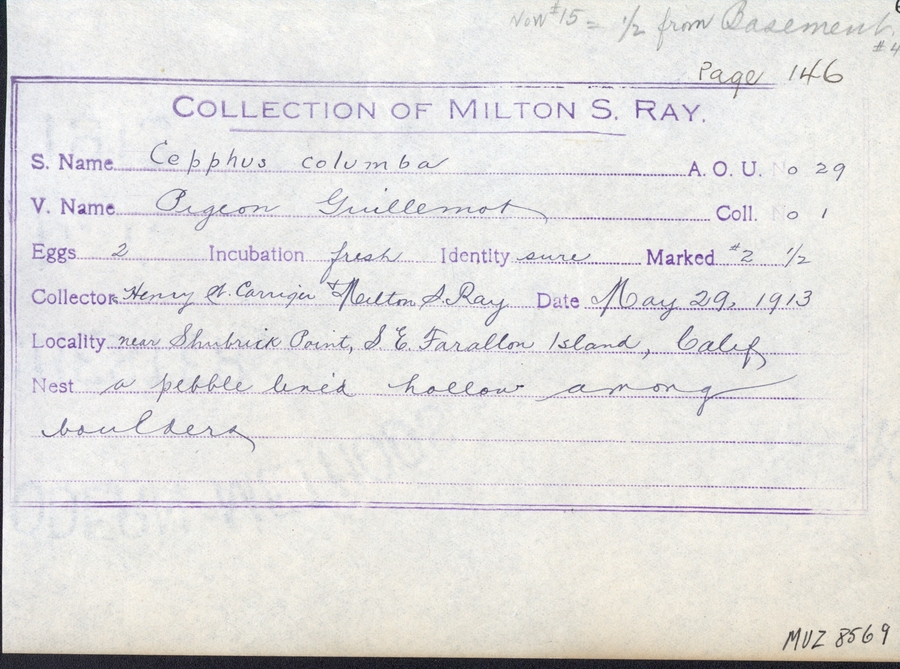 Now #15 = 1/2 from Basement.
#4
Page 146
COLLECTION OF MILTON S. RAY.
S. Name Cepphus columba A. O. U. No 29
V. Name Pigeon Guillemot Coll. No 1
Eggs 2 Incubation fresh Identity sure Marked #2 1/2
Collectors Henry W. Carriger & Milton S. Ray Date May 29, 1913
Locality near Shubrick Point, S E. Farallon Island, Calif
Nest a pebble lined hollow among
boulders
MVZ 8569